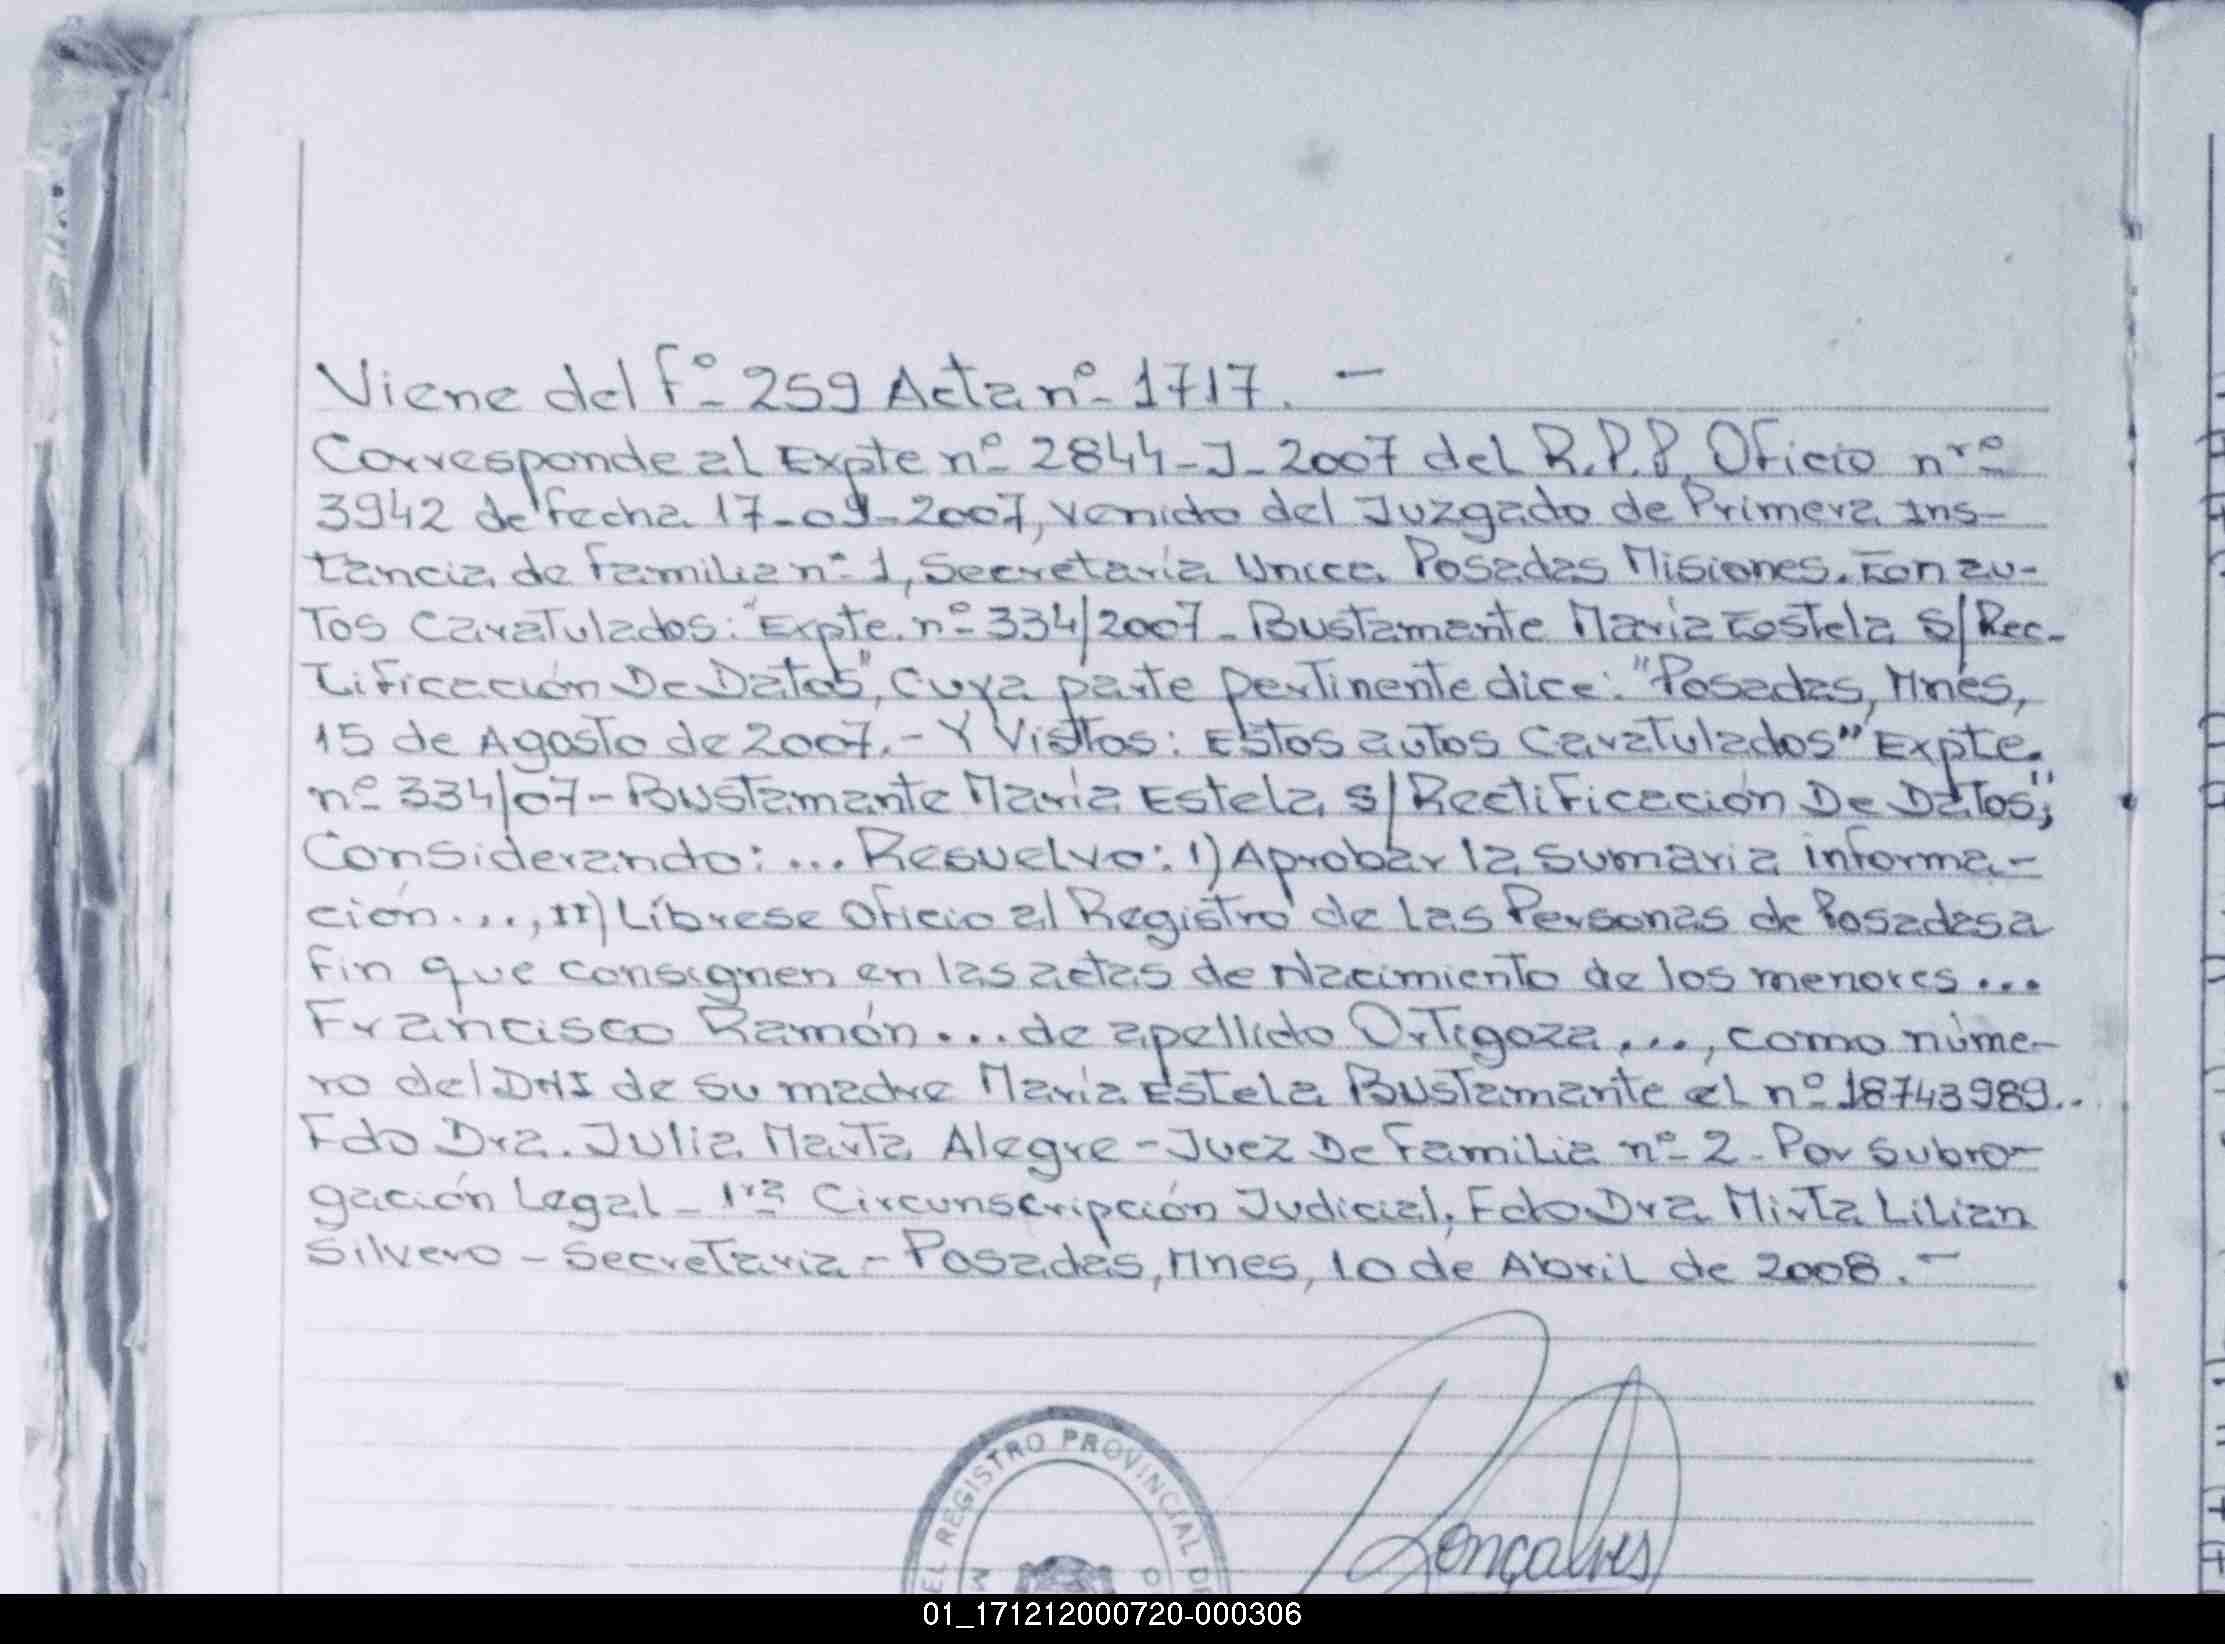 Viene del fº 259 Acta nº 1717. –
Corresponde al Expte nº 2844-J-2007 del R.P.P. Oficio nrº
3942 de fecha 17-09-2007, venido del Juzgado de Primera Ins-
tancia de Familia nº 1, Secretaría Unica Posadas Misiones. En au-
tos Caratulados: "Expte. nº 334/2007 - Bustamante Maria Estela S/Rec-
tificación De Datos", Cuya parte pertinente dice: "Posadas, Mnes,
15 de Agosto de 2007.- Y Vistos: Estos autos Caratulados "Expte.
nº 334/07 - Bustamante María Estela s/Rectificación De Datos";
Considerando: ... Resuelvo: 1) Aprobar la sumaria informa-
ción..., II) Líbrese Oficio al Registro de Las Personas de Posadas a
fin que consignen en las actas de Nacimiento de los menores ...
Francisco Ramón ... de apellido Ortigoza ..., como núme-
ro del DNI de su madre María Estela Bustamante el nº 18743989..
Fdo Dra. Julia Marta Alegre - Juez De Familia nº 2 - Por Subro-
gación Legal - 1ra Circunscripción Judicial, Fdo Dra Mirta Lilian
Silvero - Secretaria - Posadas, Mnes, 10 de Abril de 2008. –
EL REGISTRO PROVINCIAL DE
Gonçalves
01_171212000720-000306